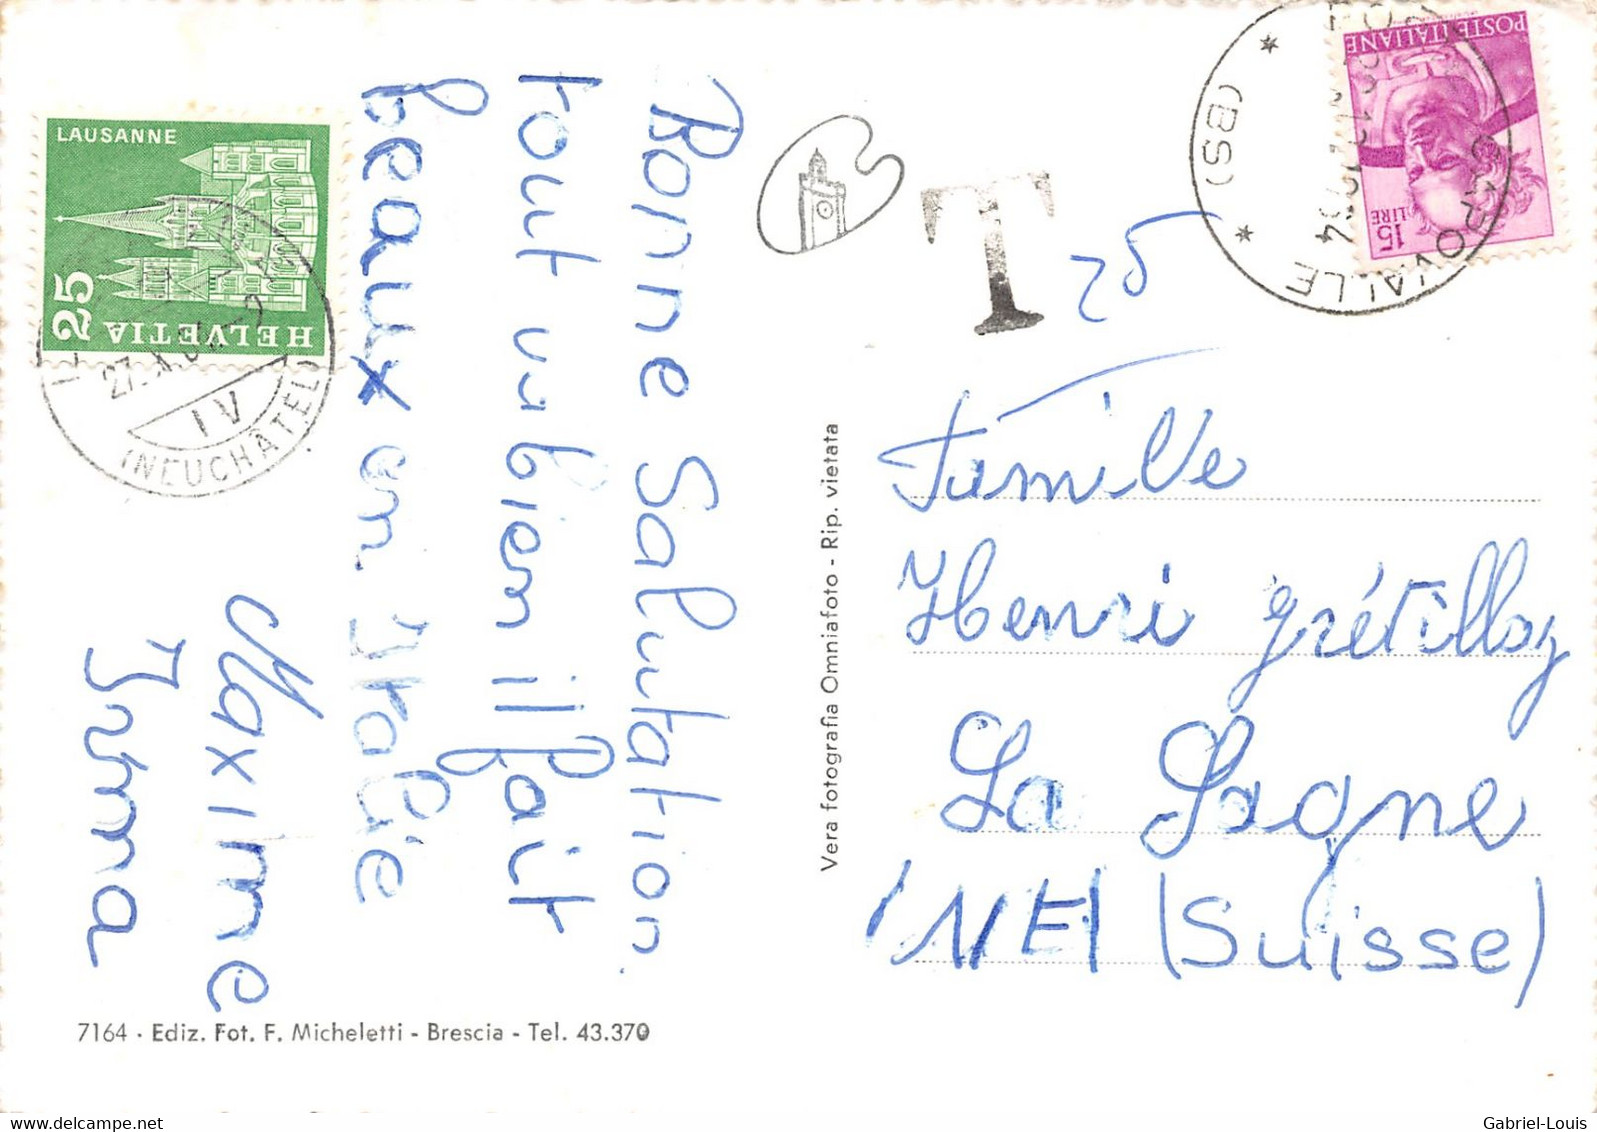 Bonne Salutation.
tout va bien il fait
beaux en Italie
Maxime
Irma
LAUSANNE
25
HELVETIA
27. X.
IV
(NEUCHÂTEL)
T
25
POSTE ITALIANE
15
LIRE
CAPOVALLE
* (BS) *
Famille
Henri Grétillaz
La Sagne
(NE) (Suisse)
Vera fotografia Omniafoto - Rip. vietata
7164 · Ediz. Fot. F. Micheletti - Brescia - Tel. 43.370
Gabriel-Louis